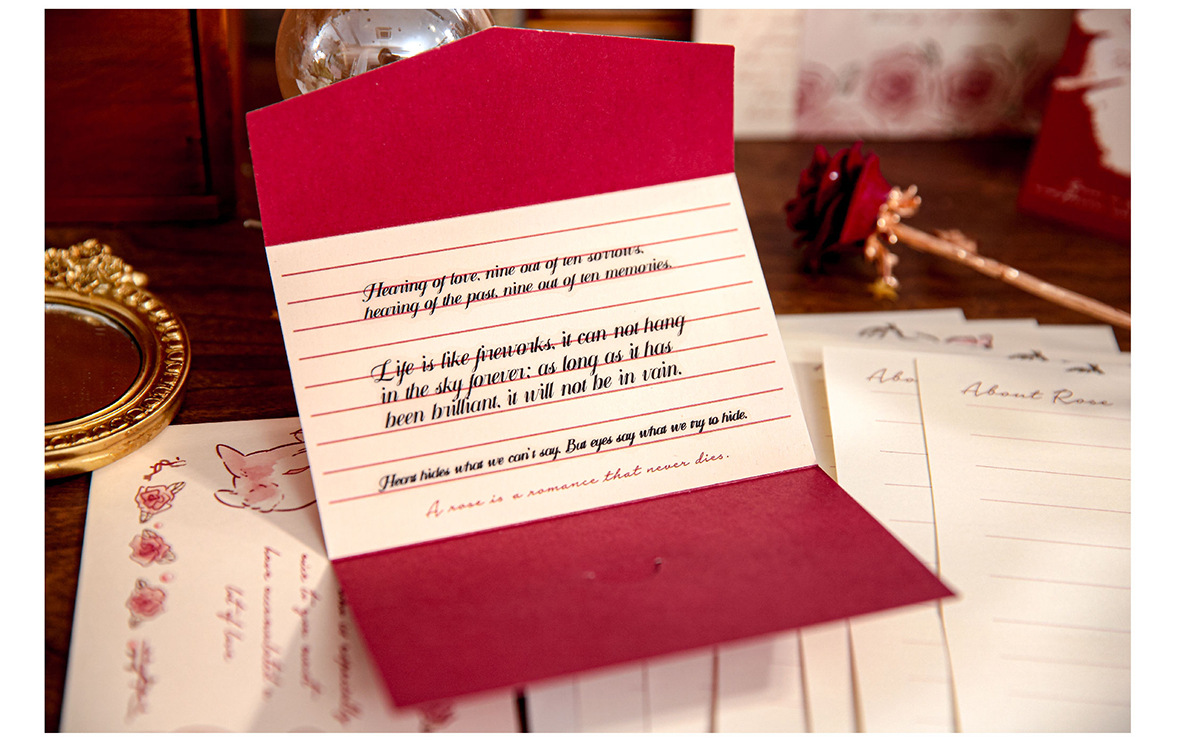 Hearing of love, nine out of ten sorrows,
hearing of the past, nine out of ten memories.
Life is like fireworks, it can not hang
in the sky forever; as long as it has
been brilliant, it will not be in vain.
Heart hides what we can't say. But eyes say what we try to hide.
A rose is a romance that never dies.
Abo
About Rose
lot of love